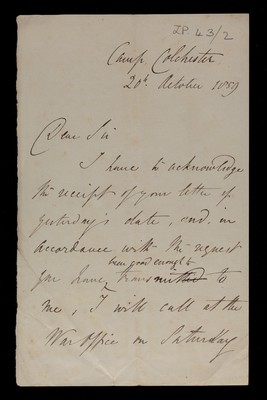 ZP 43/2
Camp, Colchester
20th October 1859
Dear Sir
I have to acknowledge
the receipt of your letter of
yesterday's date, and in
accordance with the request
been good enough to
you have transmitted to
me, I will call at the
War Office on Saturday